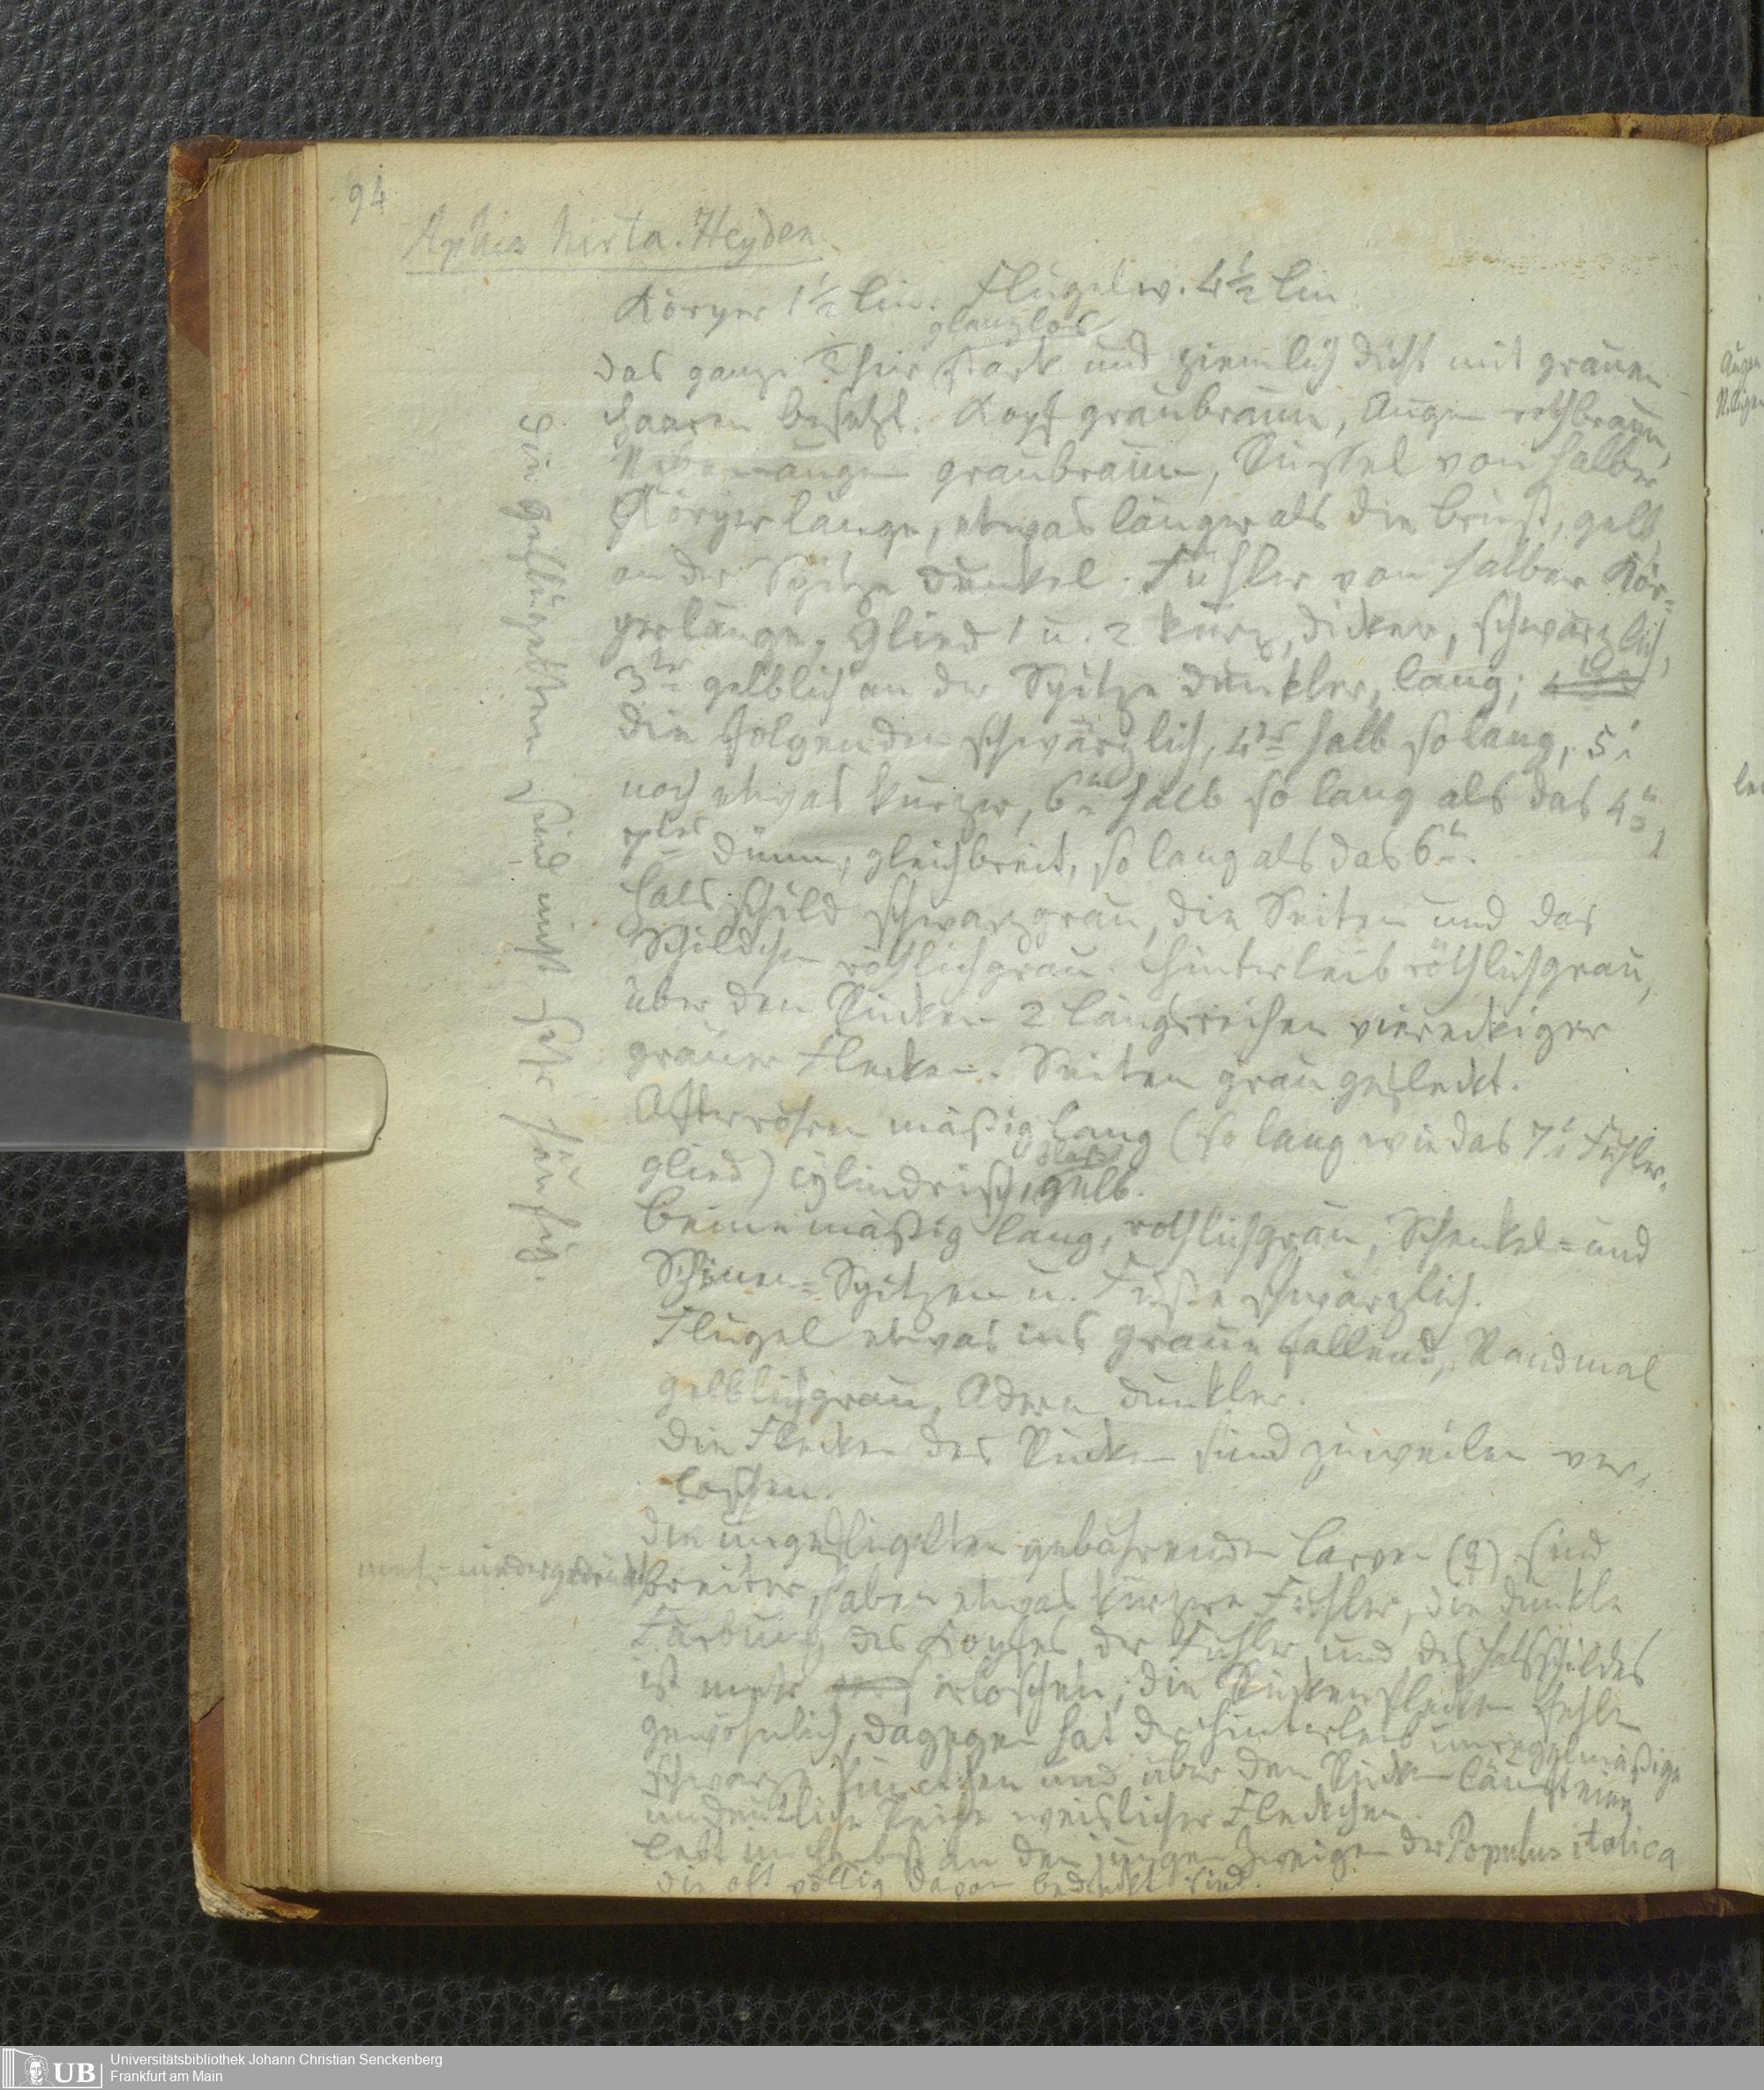 94
Aphis hirta. Heyden
Körper 1½ lin. Flügelw. 4½ lin
glanzlos
Das ganze Thier stark und ziemlich dicht mit grauen
Haaren besetzt. Kopf graubraun, Augen rothbraun,
Nebenaugen graubraun, Rüssel von halber
Körperlänge, etwas länger als die Brust, gelb,
an der Spitze dunkel. Fühler von halber Kör=
perlänge, Glied 1 u. 2 kurz, dicker, schwärzlich,
3tes gelblich an der Spitze dunkler, lang;
die folgenden schwärzlich, 4tes halb so lang, 5s
noch etwas kürzer, 6tes halb so lang als das 4te,
7tes dünn, gleichbreit, so lang als das 6te.
Halsschild schwarzgrau, die Seiten und das
Schildchen röthlichgrau. Hinterleib röthlichgrau,
über den Rücken 2 Längsreihen viereckiger
grauer Flecken. Seiten grau gefleckt.
Afterröhren mäßig lang (so lang wie das 7te Fühler=
glied) cylindrisch, gelb.
Beine mäßig lang, rothlichgrau, Schenkel= und
Schienen=Spitzen u. Füße schwärzlich.
Flügel etwas ins graue fallend, Randmal
gelblichgrau, Adern dunkler.
Die Flecken des Rücken sind zuweilen ver=
loschen.
Die ungeflügelten gebährenden Larven (♀) sind
mehr niedergedrückt
breiter, haben etwas kürzere Fühler, die dunkle
Färbung des Kopfes der Fühler und des Halsschildes
ist mehr erloschen, die Rückenflecken fehlen
gewöhnlich, dagegen hat der Hinterleib unregelmäßige
schwarze und über den Rücken läuft eine
undeutliche Reihe weislicher Fleckchen.
Lebt im Herbst an den jungen Zweigen der Populus italica
die oft völlig davon bedeckt sind.
Die geflügelten sind nicht sehr häufig.